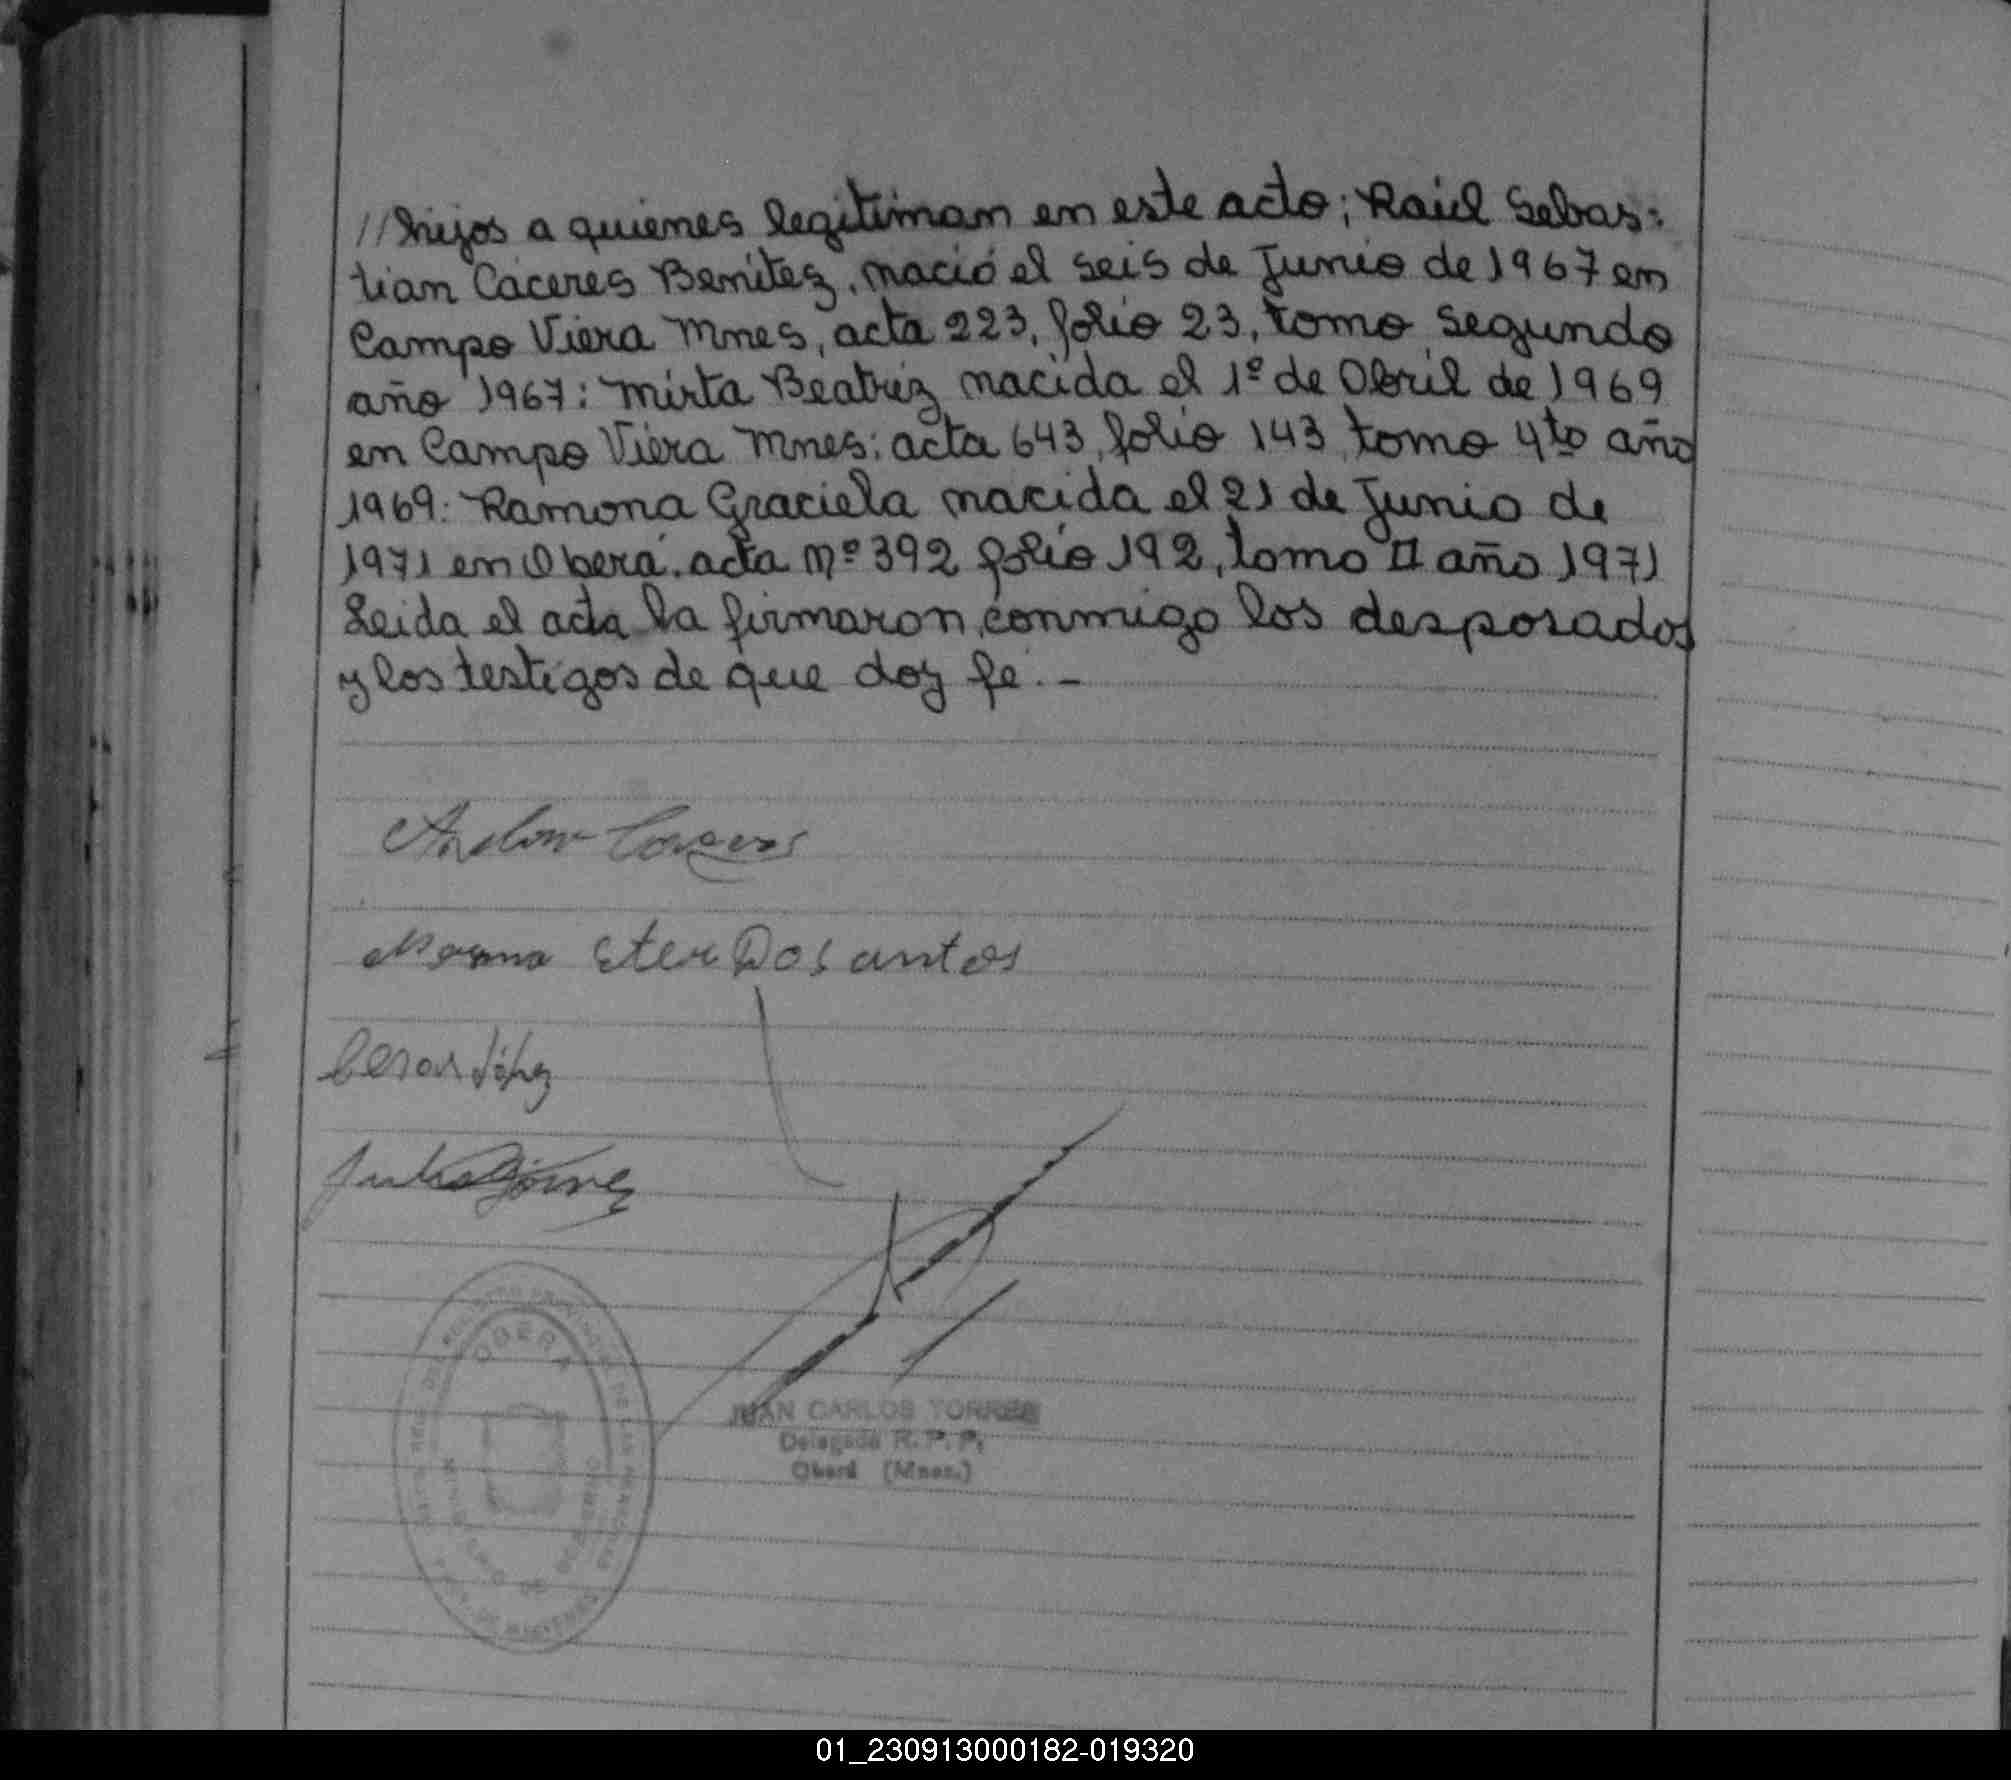 //hijos a quienes legitiman en este acto; Raúl Sebas:
tian Cáceres Benítez, nació el seis de Junio de 1967 en
Campo Viera Mnes, acta 223, folio 23, tomo segundo
año 1967: Mirta Beatriz nacida el 1º de Abril de 1969
en Campo Viera Mnes: acta 643, folio 143, tomo 4to año
1969: Ramona Graciela nacida el 21 de Junio de
1971 en Oberá. acta Nº 392 folio 192, tomo II año 1971
Leida el acta la firmaron conmigo los desposados
y los testigos de que doy fé.-
Norma Ester Dos antos
Cesar López
OBERA
JUAN CARLOS TORRES
Delegado R. P. P.
Oberá (Mnes.)
01_230913000182-019320